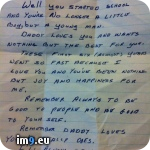 Well you started school
and you're no longer a little
boy, but a young man.
Daddy loves you and wants
nothing but the best for you.
These first six years
went so fast because I
love you and you've been nothing
but joy and happiness for
me.
Remember always to be
good to people and be good
to your self.
Remember Daddy loves
you does.
im9.eu